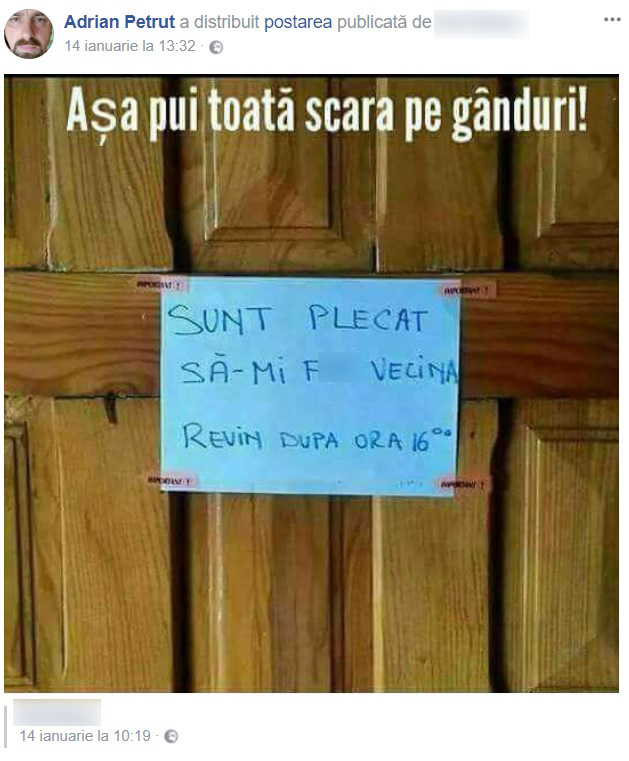 Adrian Petrut a distribuit postarea publicată de
14 ianuarie la 13:32 ·
Așa pui toată scara pe gânduri!
IMPORTANT !
IMPORTANT !
SUNT PLECAT
SĂ-MI F VECINA
REVIN DUPA ORA 16⁰⁰
IMPORTANT !
IMPORTANT !
14 ianuarie la 10:19 ·